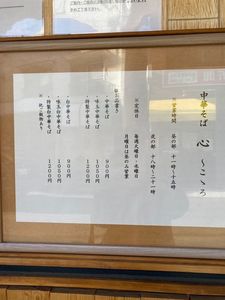 中華そば 心 〜こころ
※営業時間 昼の部 十一時〜十五時
夜の部 十八時〜二十一時
※定休日 毎週火曜日・水曜日
月曜日は昼のみ営業
・中華そば 900円
・味玉中華そば 1050円
・特製中華そば 1200円
・白中華そば 900円
・味玉白中華そば 1050円
・特製白中華そば 1200円